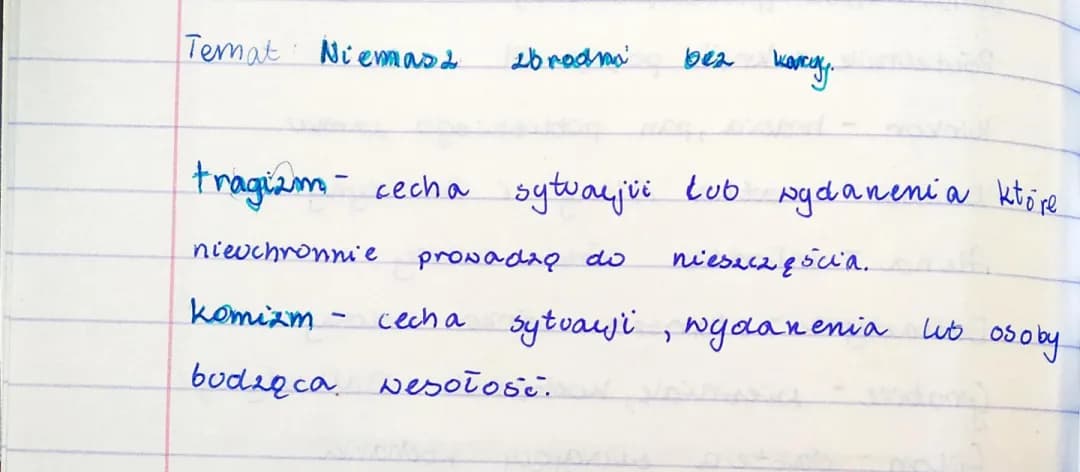 Temat: Niemasz zbrodni bez kary.
tragizm - cecha sytuacjii lub wydarzenia które
nieuchronnie prowadzą do nieszczęścia.
komizm - cecha sytuacji, wydarzenia lub osoby
budząca wesołość.